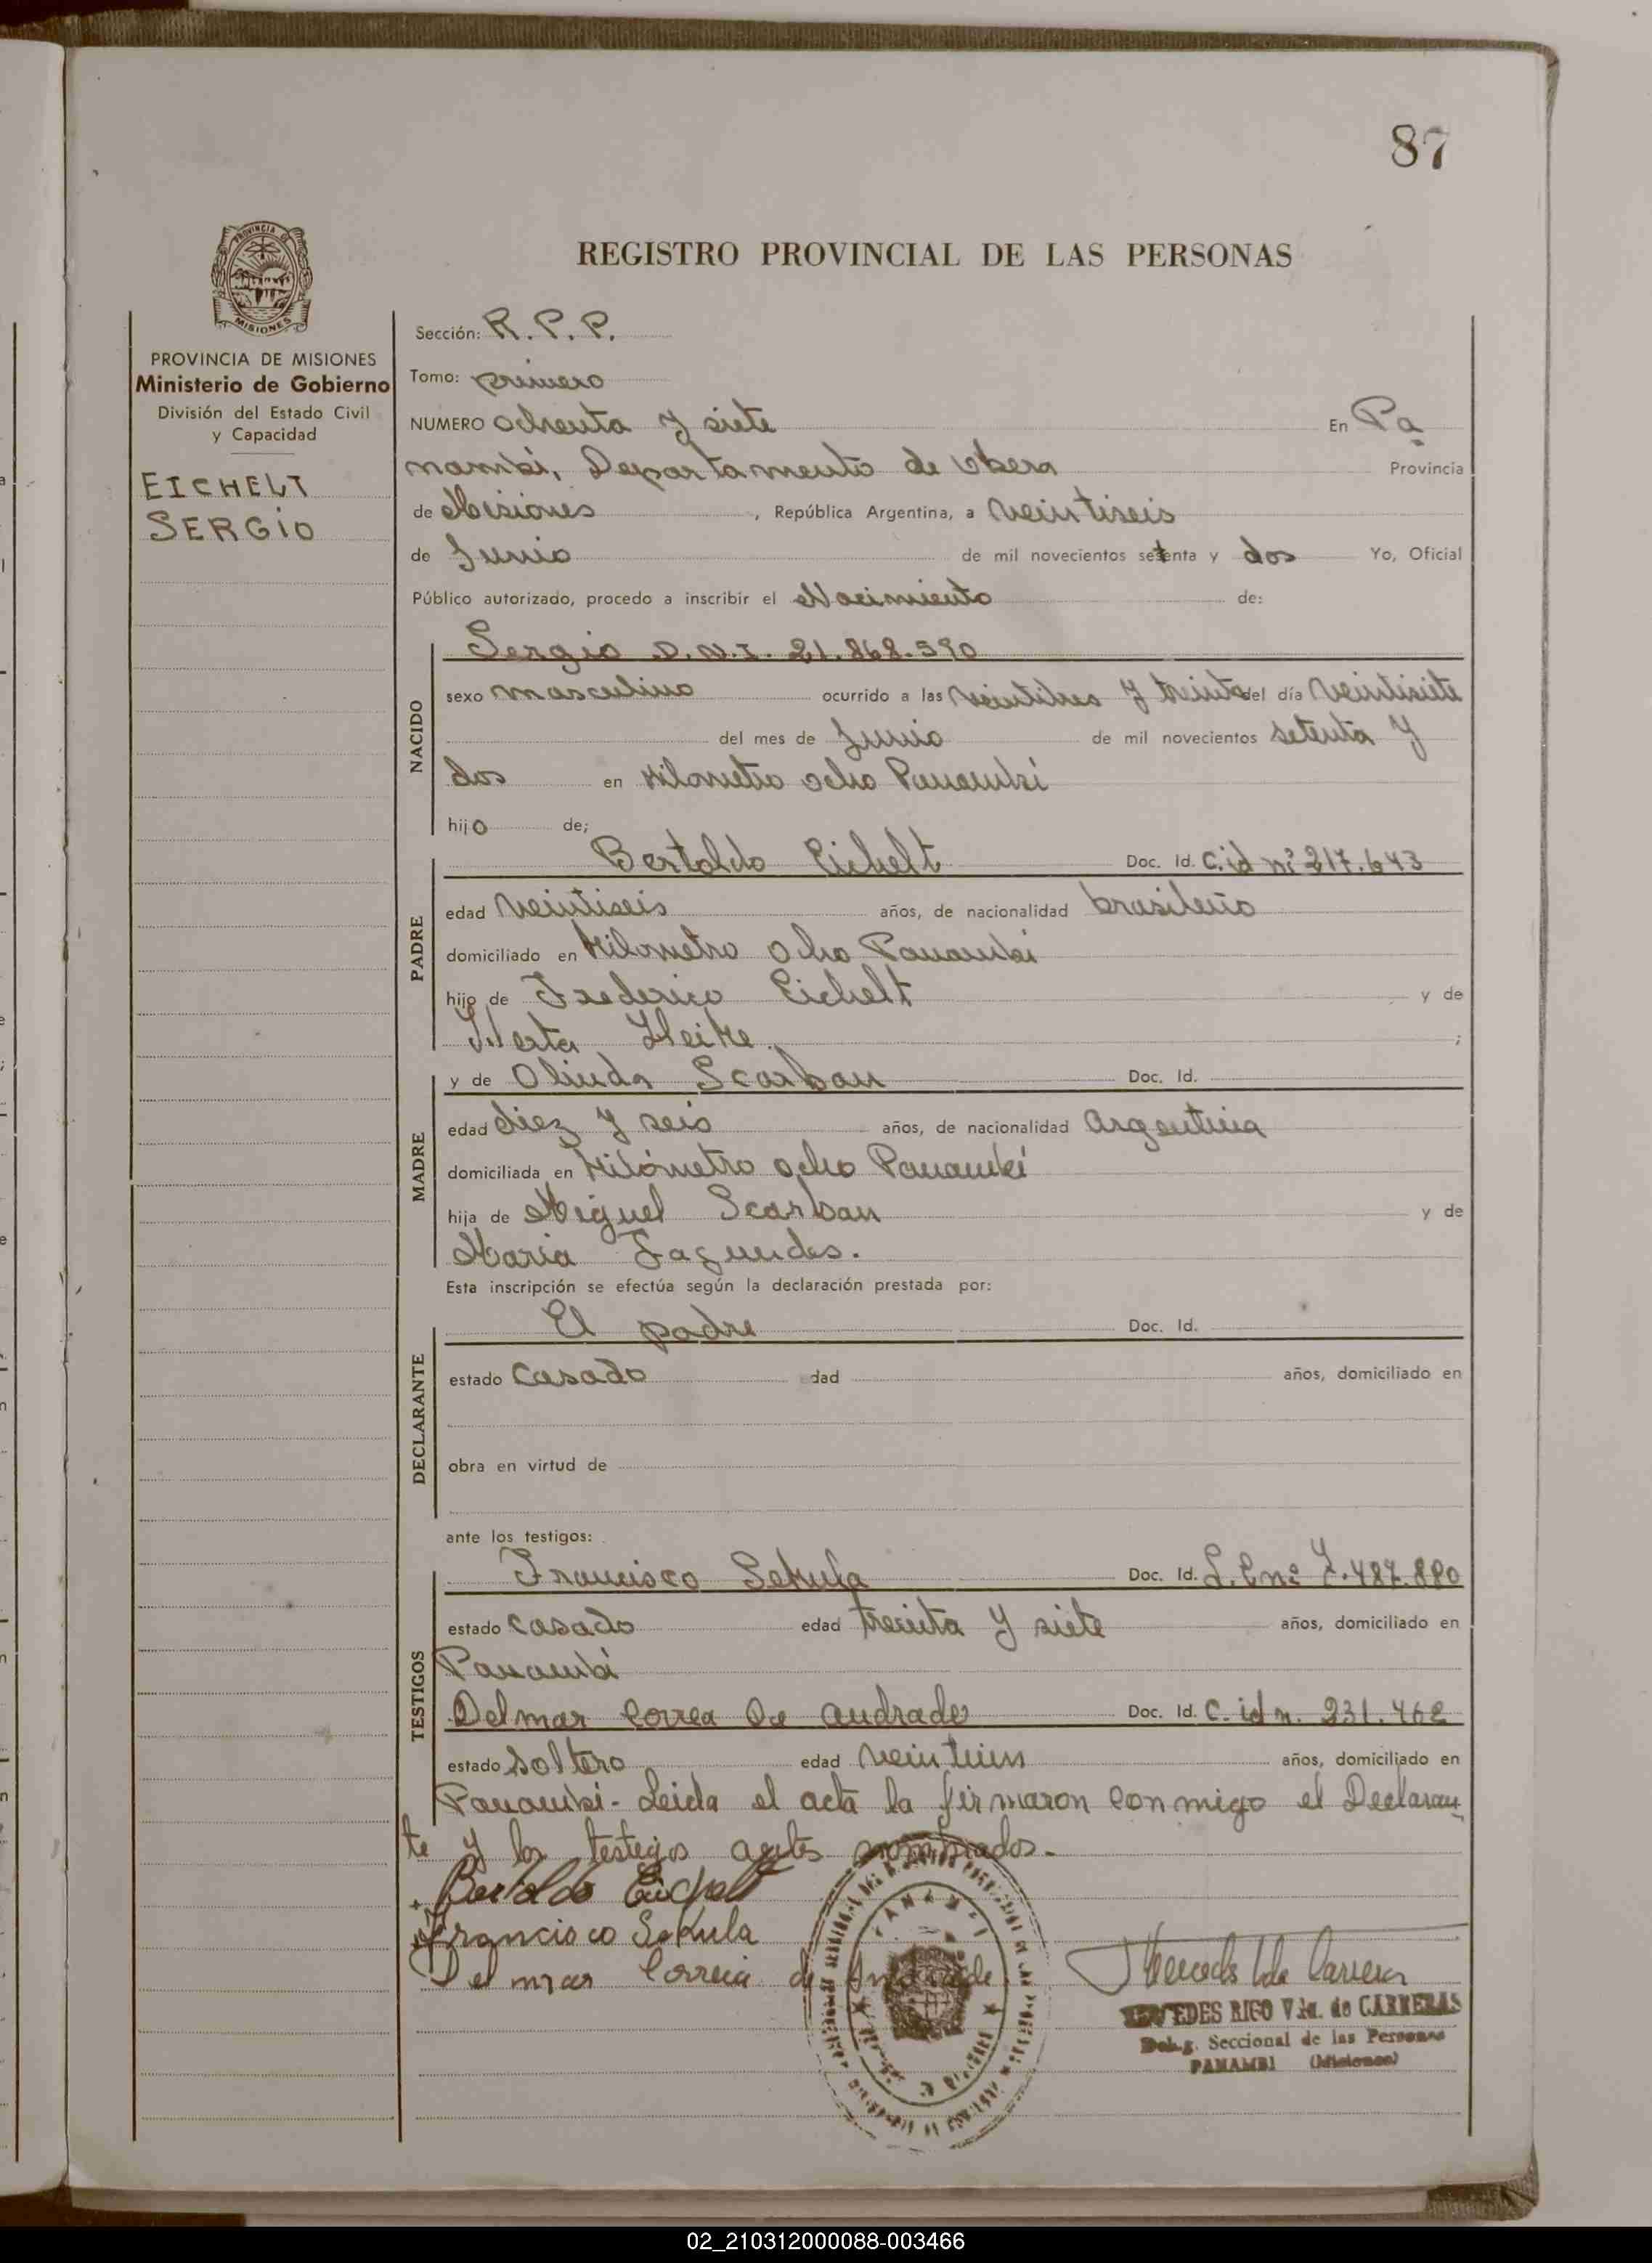 87
REGISTRO PROVINCIAL DE LAS PERSONAS
PROVINCIA DE
MISIONES
PROVINCIA DE MISIONES
Ministerio de Gobierno
División del Estado Civil
y Capacidad
EICHELT
SERGIO
Sección: R. P. P.
Tomo: primero
NUMERO ochenta y siete En Pa
nambi, Departamento de Obera Provincia
de Misiones, República Argentina, a veintiseis
de Junio de mil novecientos setenta y dos Yo, Oficial
Público autorizado, procedo a inscribir el Nacimiento de:
NACIDO
Sergio D.N.I. 21.868.590
sexo masculino ocurrido a las veintitres y treinta del día veintisiete
del mes de Junio de mil novecientos setenta y
dos en Kilometro ocho Panambi
hijo de;
PADRE
Bertoldo Eichelt Doc. Id. C.id nº 217.643
edad veintiseis años, de nacionalidad brasileño
domiciliado en Kilometro ocho Panambi
hijo de Frederico Eichelt y de
Herta Heike ;
MADRE
y de Olinda Scarban Doc. Id.
edad diez y seis años, de nacionalidad Argentina
domiciliada en Kilómetro ocho Panambi
hija de Miguel Scarban y de
Maria Fagundes.
Esta inscripción se efectúa según la declaración prestada por:
DECLARANTE
El padre Doc. Id.
estado Casado edad años, domiciliado en
obra en virtud de
ante los testigos:
TESTIGOS
Francisco Sekula Doc. Id. L.E nº 7.487.880
estado casado edad treinta y siete años, domiciliado en
Panambi
Delmar Correa De Andrade Doc. Id. C. id n. 231.462
estado soltero edad veintiun años, domiciliado en
Panambi- Leida el acta la firmaron conmigo el Declaran
te y los testigos antes nombrados.-
Bertoldo Eichelt
Francisco Sekula
Delmar Correia de Andrade
PANAMBI
MERCEDES RIGO Vda. de CARRERAS
Deleg. Seccional de las Personas
PANAMBI (Misiones)
02_210312000088-003466